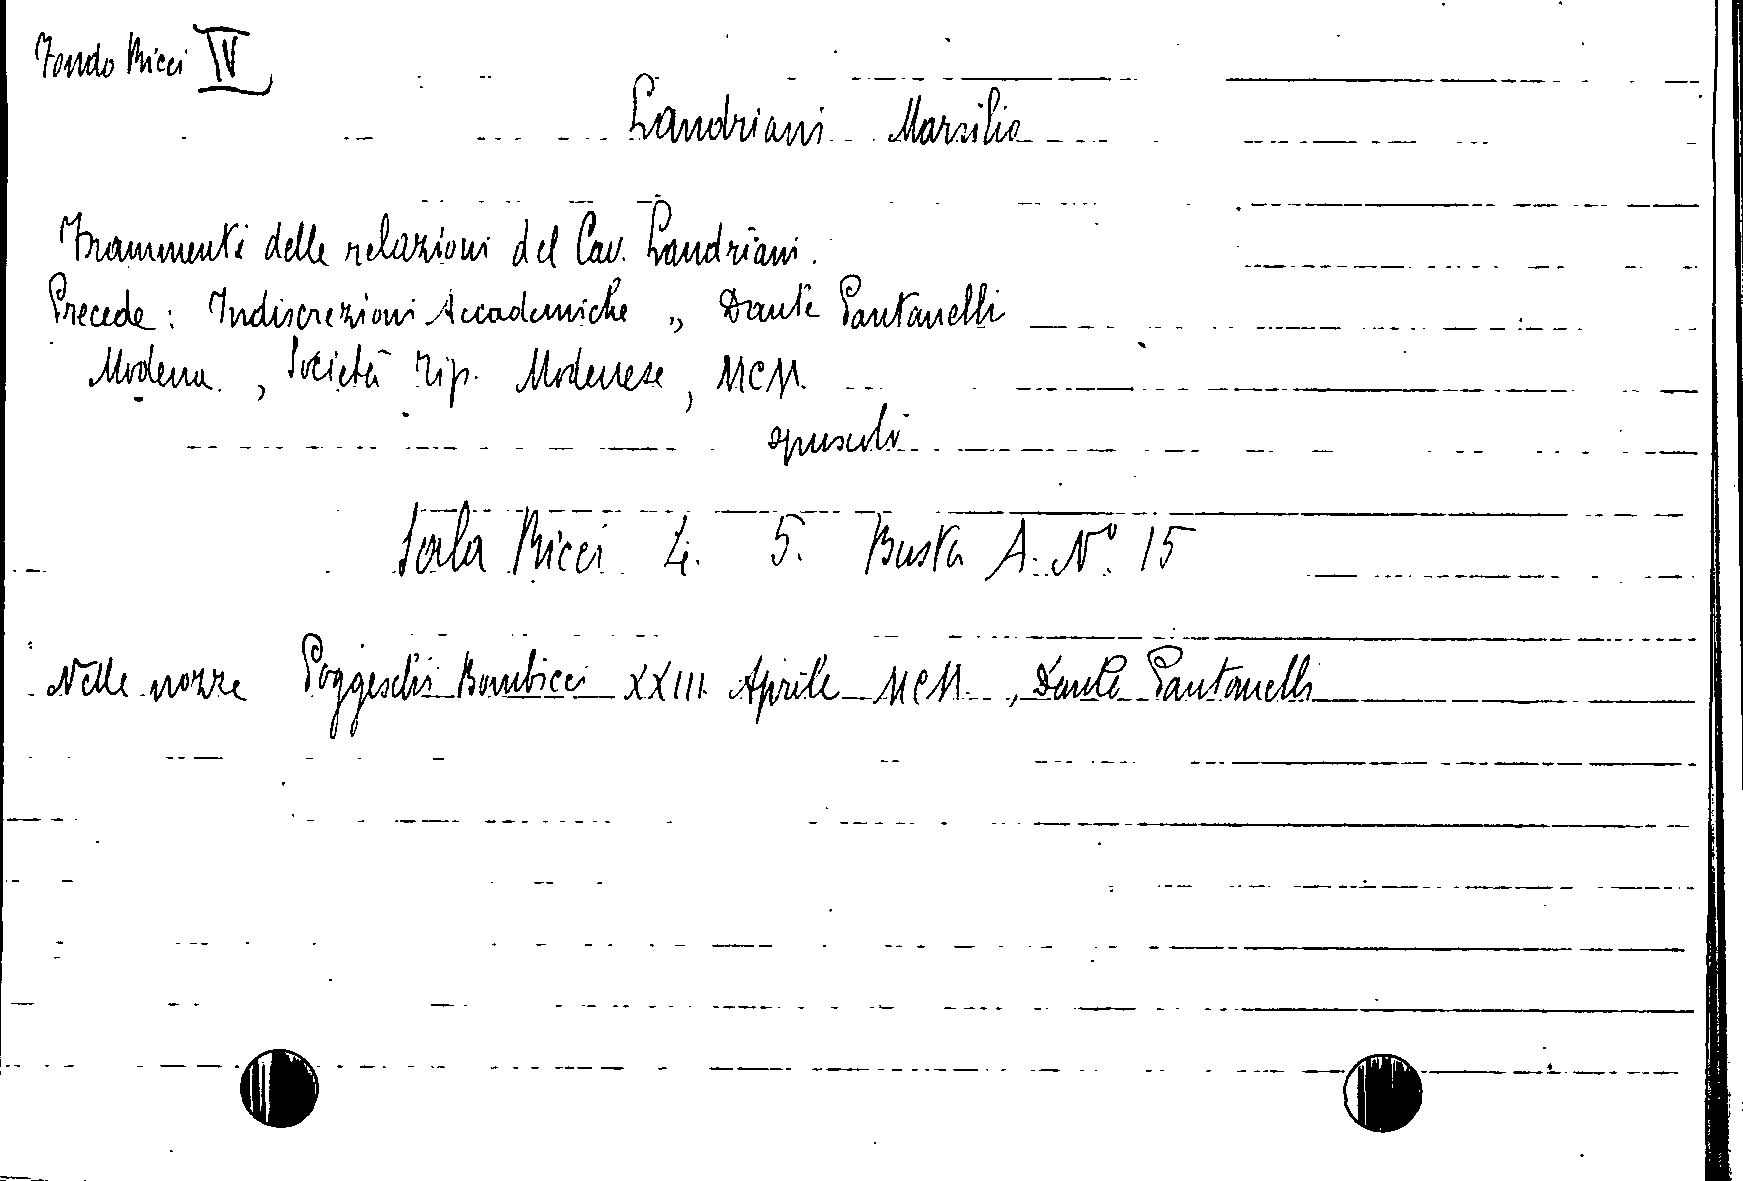 Fondo Ricci IV
Landriani Marsilio
Frammenti delle relazioni del Cav. Landriani.
Precede: Indiscrezioni Accademiche „ Dante Pantanelli
Modena, Società tip. Modenese, MCM.
opuscoli
Sala Ricci 4. 5. Busta A. N° 15
Nelle nozze Poggeschi Bombicci XXIII Aprile MCM., Dante Pantanelli